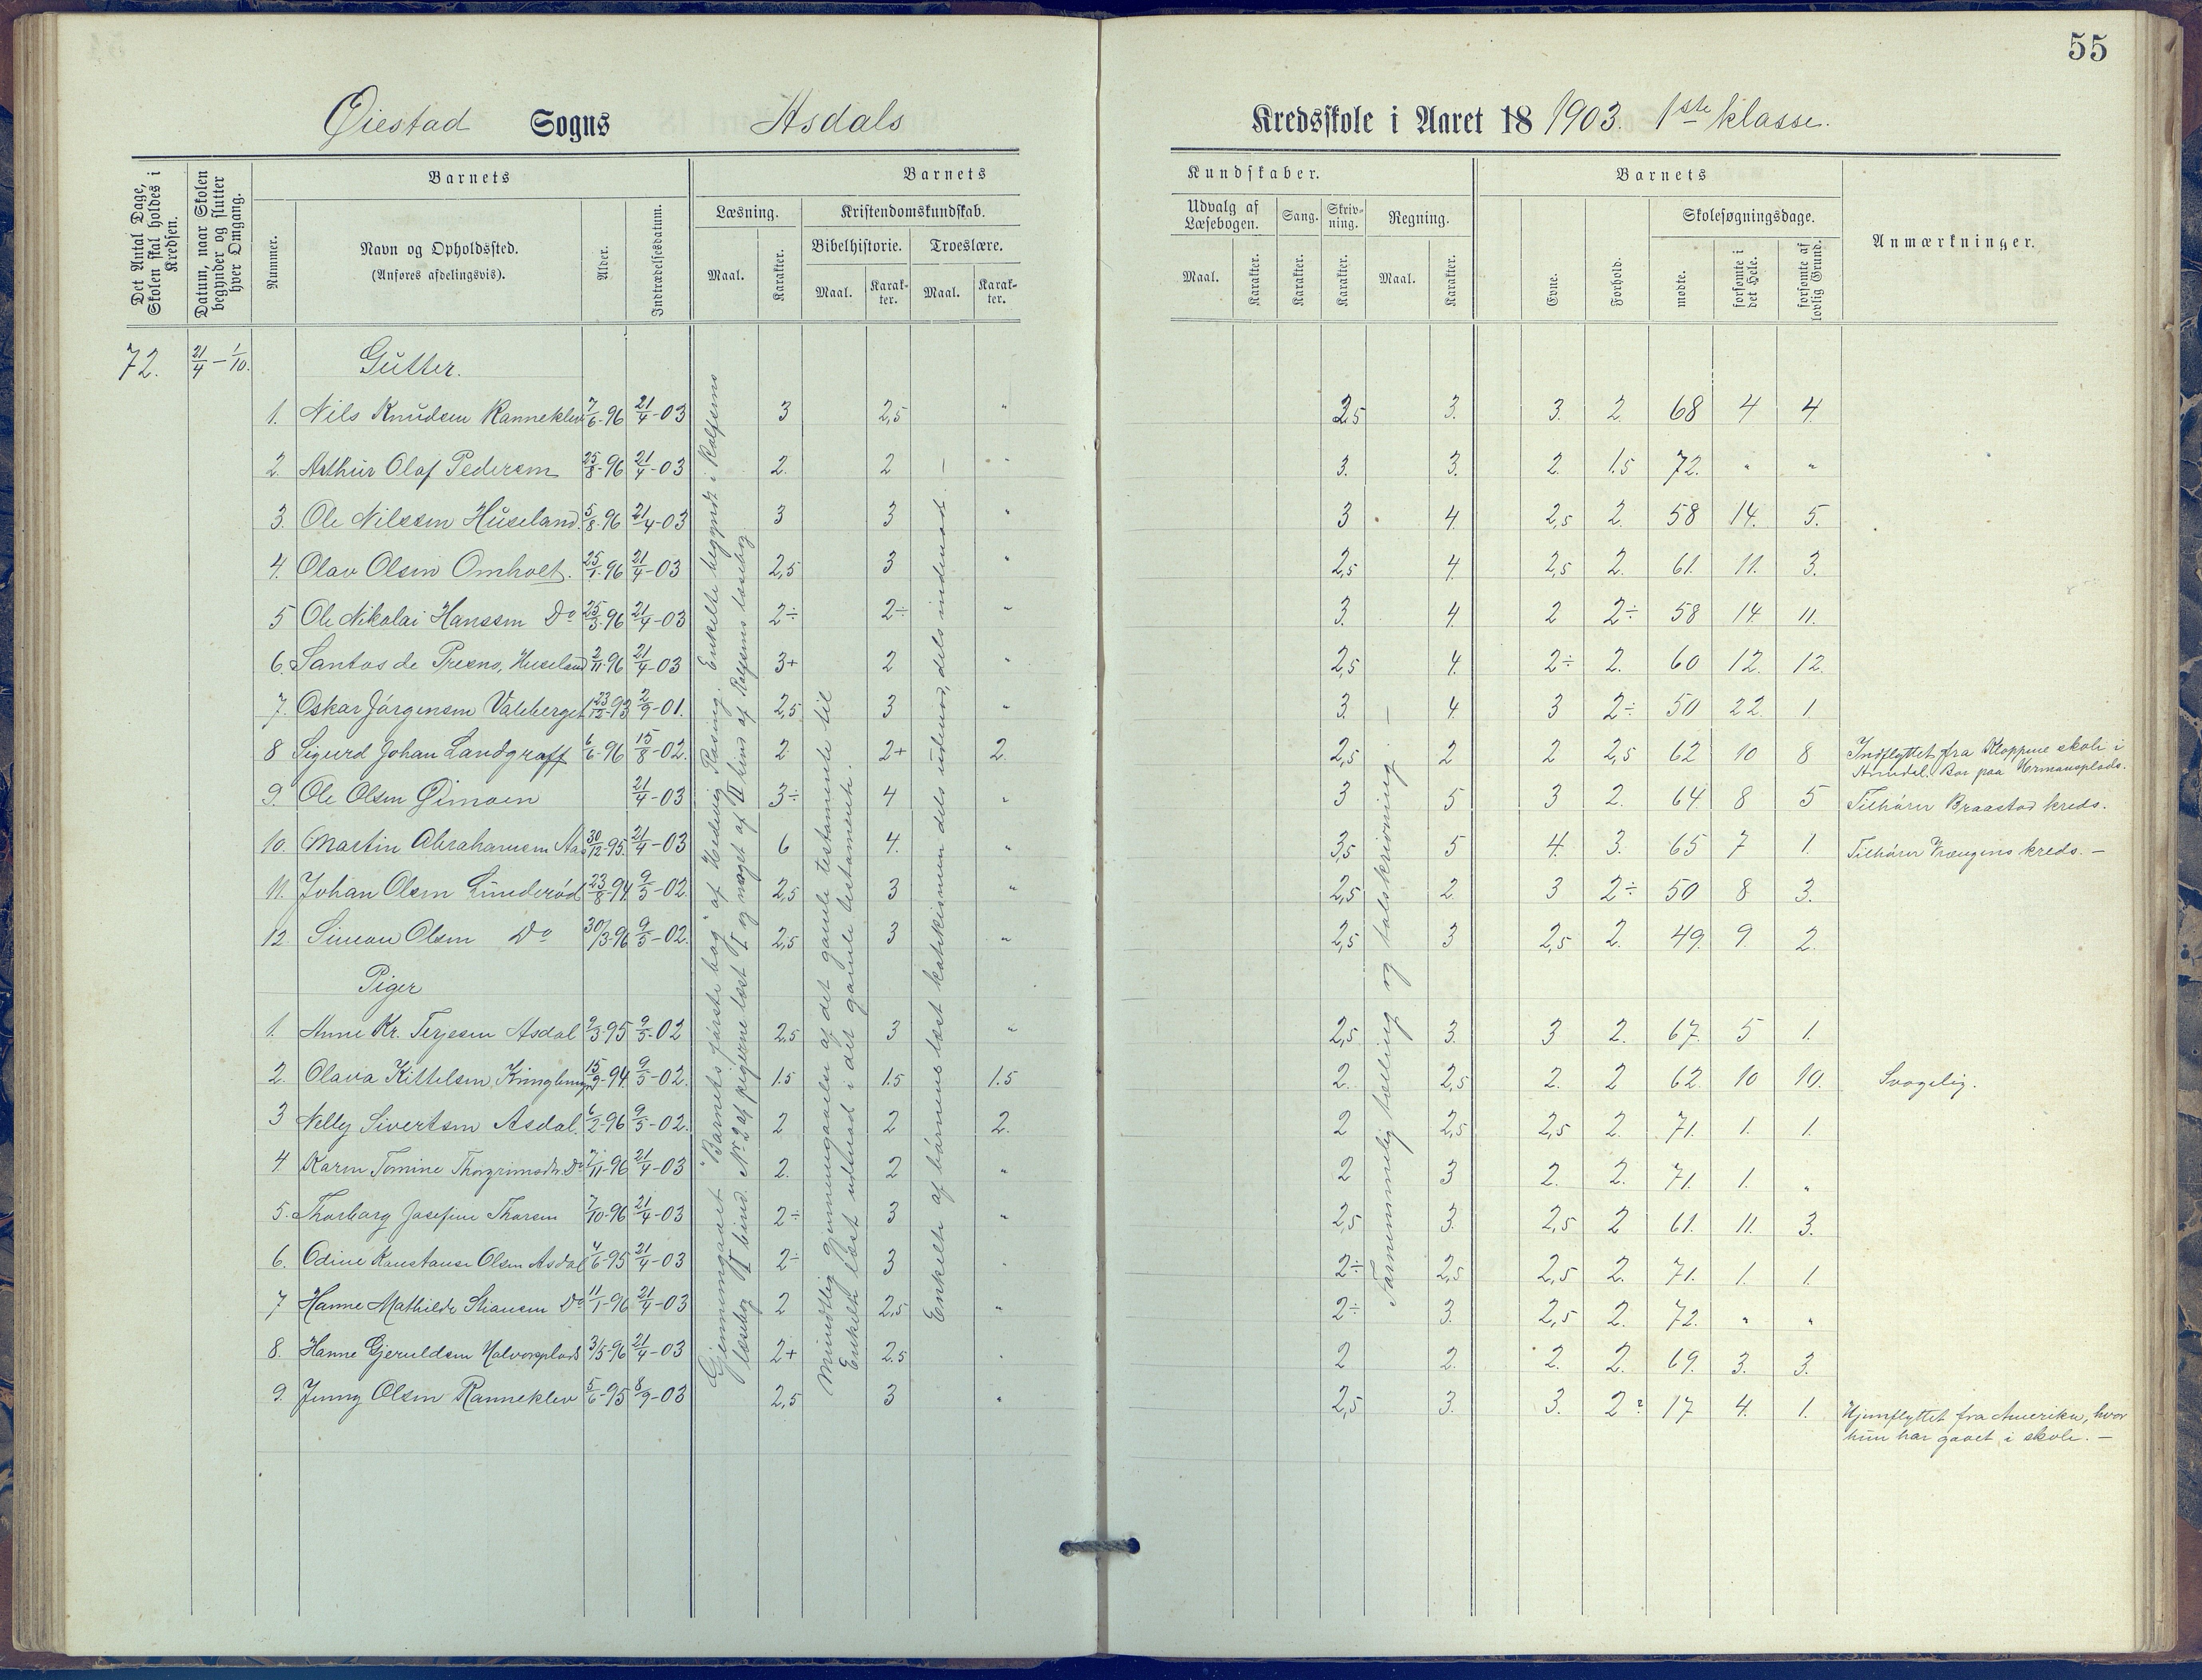 55
Øiestad Sogns Asdals Kredsskole i Aaret 18 1903. 1ste klasse.
Det Antal Dage, Skolen skal holdes i Kredsen.
Datum, naar Skolen begynder og slutter hver Omgang.
Barnets
Nummer.
Navn og Opholdssted.
(Anføres afdelingsvis).
Alder.
Indtrædelsesdatum.
Barnets Kundskaber.
Læsning.
Maal.
Karakter.
Kristendomskundskab.
Bibelhistorie.
Maal.
Karakter.
Troeslære.
Maal.
Karakter.
Udvalg af Læsebogen.
Maal.
Karakter.
Sang.
Karakter.
Skrivning.
Karakter.
Regning.
Maal.
Karakter.
Barnets
Evne.
Forhold.
Skolesøgningsdage.
mødte.
forsømte i det Hele.
forsømte af lovlig Grund.
Anmærkninger.
72. 21/4 – 1/10. Gutter.
1. Nils Knudsen Ranneklev 7/6-96 21/4-03 3 2,5 " 2,5 3. 3. 2. 68 4 4.
2. Arthur Olaf Pedersen 25/8-96 21/4-03 2. 2 – " 3. 3. 2. 1.5 72. " "
3. Ole Nilssen Huseland. 5/8-96 21/4-03 3 3 " 3 4. 2,5 2. 58 14. 5.
4. Olav Olsen Omholt. 25/1-96 21/4-03 2,5 3 " 2,5 4. 2,5 2. 61. 11. 3.
5 Ole Nikolai Hanssen Do 25/3-96 21/4-03 2÷ 2÷ " 3. 4. 2 2÷ 58 14. 11.
6. Santos de Presno, Huseland 2/11-96 21/4-03 3+ 2 " 2,5 4. 2÷ 2. 60 12. 12.
7. Oskar Jørgensen Valeberget 23/12-93 2/9-01. 2,5 3 " 3. 4. 3 2÷ 50 22. 1.
8 Sigurd Johan Landgraff 6/6-96 15/8-02. 2 2+ 2. 2,5 2 2 2,5 62 10 8 Indflyttet fra Kloppene skole i
Arendal. Bor paa Hermansplads.
9. Ole Olsen Gimoen 21/4-03 3÷ 4 " 3 5 3 2. 64. 8 5 Tilhører Braastad kreds.
10. Martin Abrahamsen Aas 30/12-95. 21/4-03 6 4. " 3,5 5 4. 3. 65 7 1. Tilhører Vrængens kreds. –
11. Johan Olsen Lunderød 23/8-94. 9/5-02. 2,5 3 " 2,5 2. 3 2÷ 50 8 3.
12 Simon Olsen Do 30/3-96 9/5-02. 2,5 3 " 2,5 3 2,5 2. 49. 9. 2.
Piger
1. Anne Kr. Terjesen Asdal 9/3-95 9/5-02 2,5 3 " 2,5 3. 3 2. 67. 5 1.
2. Olava Kittelsen, 15/9-94. 9/5-02. 1.5 1.5 1.5 2. 2,5 2. 2 62. 10 10. Svagelig.
3 Nelly Sivertsen Asdal. 6/2-96 9/5-02. 2 2 2. 2 2,5 2,5 2. 71. 1. 1.
4. Karen Tomine Thorgrimsdr. Do 7/11-96 21/4-03 2. 2 " 2 3 2. 2. 71. 1. "
5. Thorborg Josefine Thorsen 7/10-96 21/4-03 2÷ 3 " 2,5 3. 2,5 2 61. 11. 3.
6. Odine Konstanse Olsen Asdal 4/6-95 21/4-03 2÷ 3 " 2÷ 2,5 2,5 2. 71. 1. 1.
7 Hanne Mathilde Stiansen Do 11/1-96 21/4-03 2 2,5. " 2÷ 3. 2,5 2. 72. " "
8. Hanne Gjeruldsen Halvorsplads 3/5-96 21/4-03 2+ 2.5 " 2 2. 2. 2. 69. 3. 3.
9. Jenny Olsen Ranneklev 5/6-95 8/9-03 2,5 3 " 2,5 3. 3. 2? 17 4. 1. Hjemflyttet fra Amerika, hvor
hun har gaaet i skole. –
Gjennemgaaet "Barnets første bog" af Hedevig Rosing. Enkelte begyndt i Rolfsens
læsebog II bind. No 2 af pigerne læst I og noget af II bind af Rolfsens læsebog
Mundtlig gjennemgaaelse af det gamle testamente til
Enkelte læst udenad i det gamle testamente.
Enkelte af børnene læst katekismen dels udenad, dels indenad. –
Fornemmelig tælling og talskrivning. –